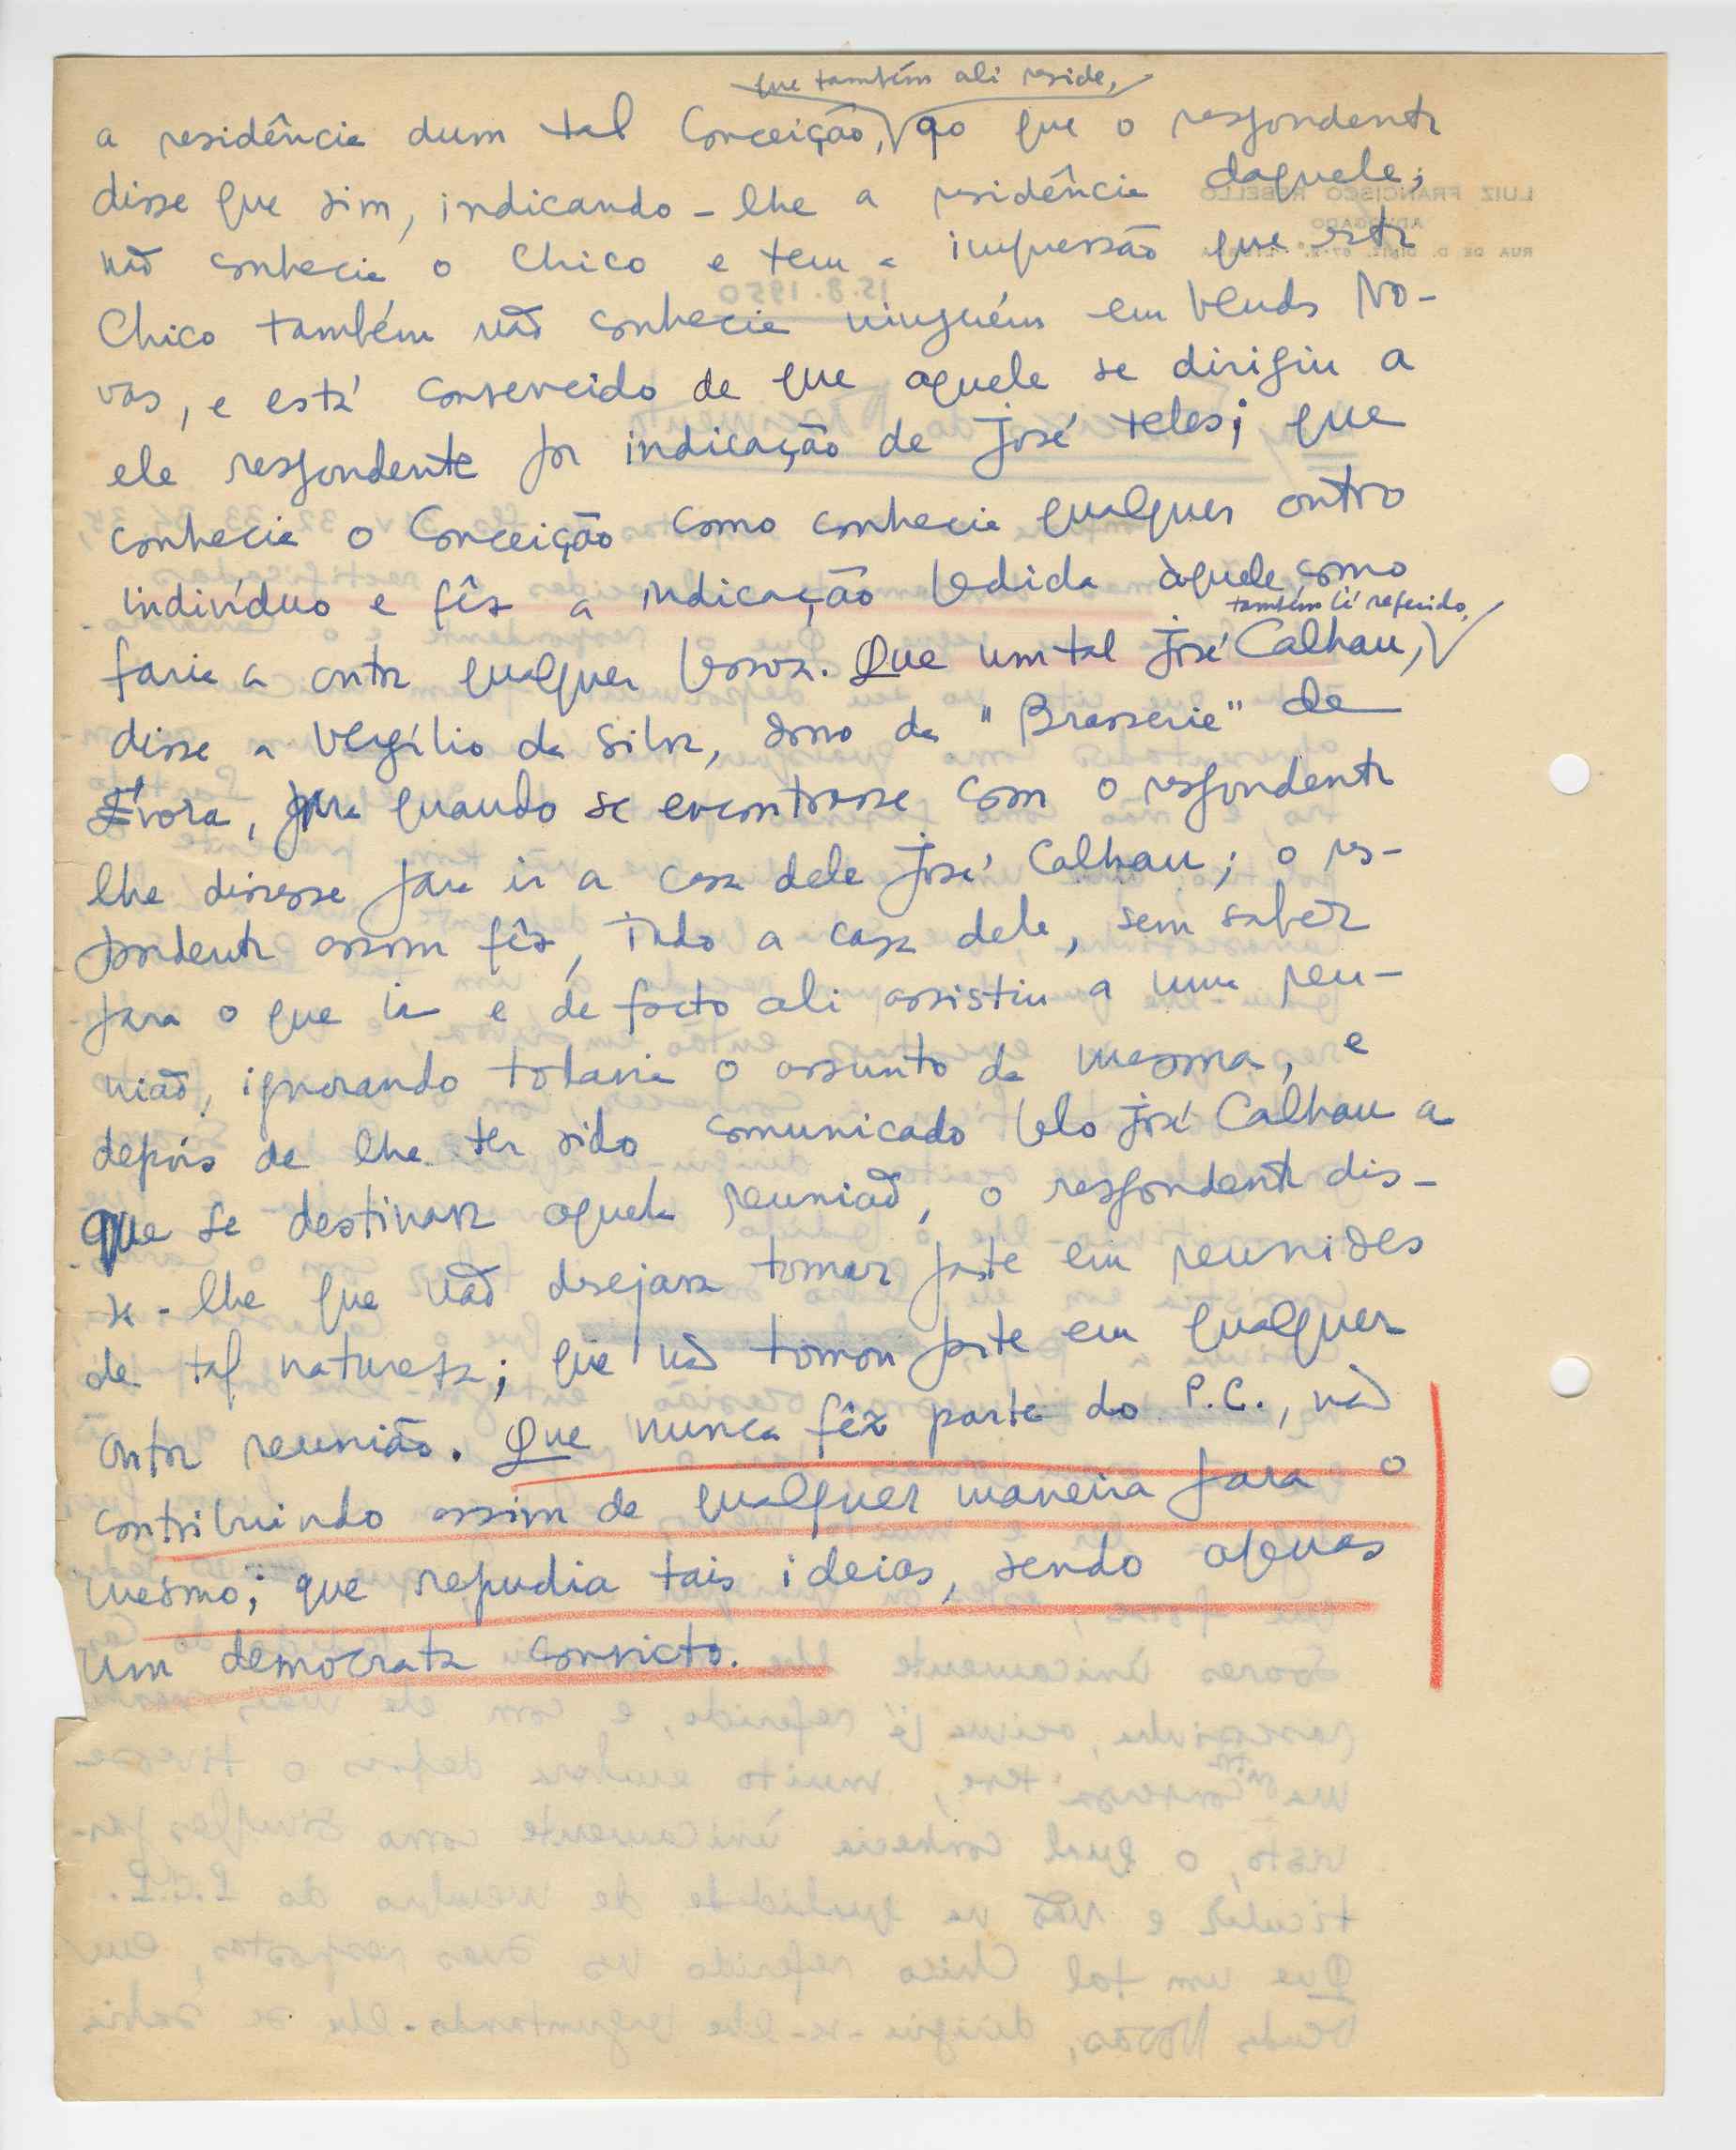 que também ali reside,
a residência dum tal Conceição, ao que o respondente
disse que sim, indicando-lhe a residência daquele;
não conhecia o Chico e tem a impressão que este
Chico também não conhecia ninguém em Vendas No-
vas, e está convencido de que aquele se dirigiu a
ele respondente por indicação de José Teles; que
conhecia o Conceição como conhecia qualquer outro
indivíduo e fêz a indicação pedida àquele como
também lá referido,
faria a outra qualquer pessoa. Que um tal José Calhau,
disse a Vergílio da Silva, dono da "Brasserie" de
Évora, para quando se encontrasse com o respondente
lhe dissesse para ir a casa dele José Calhau; o res-
pondente assim fêz, indo a casa dele, sem saber
para o que ia e de facto ali assistiu a uma reu-
nião, ignorando todavia o assunto da mesma, e
depois de lhe ter sido comunicado pelo José Calhau a
que se destinava aquela reunião, o respondente dis-
se-lhe que não desejava tomar parte em reuniões
de tal natureza; que não tomou parte em qualquer
outra reunião. Que nunca fêz parte do P.C., não
contribuindo assim de qualquer maneira para o
mesmo; que repudia tais ideias, sendo apenas
um democrata convicto.